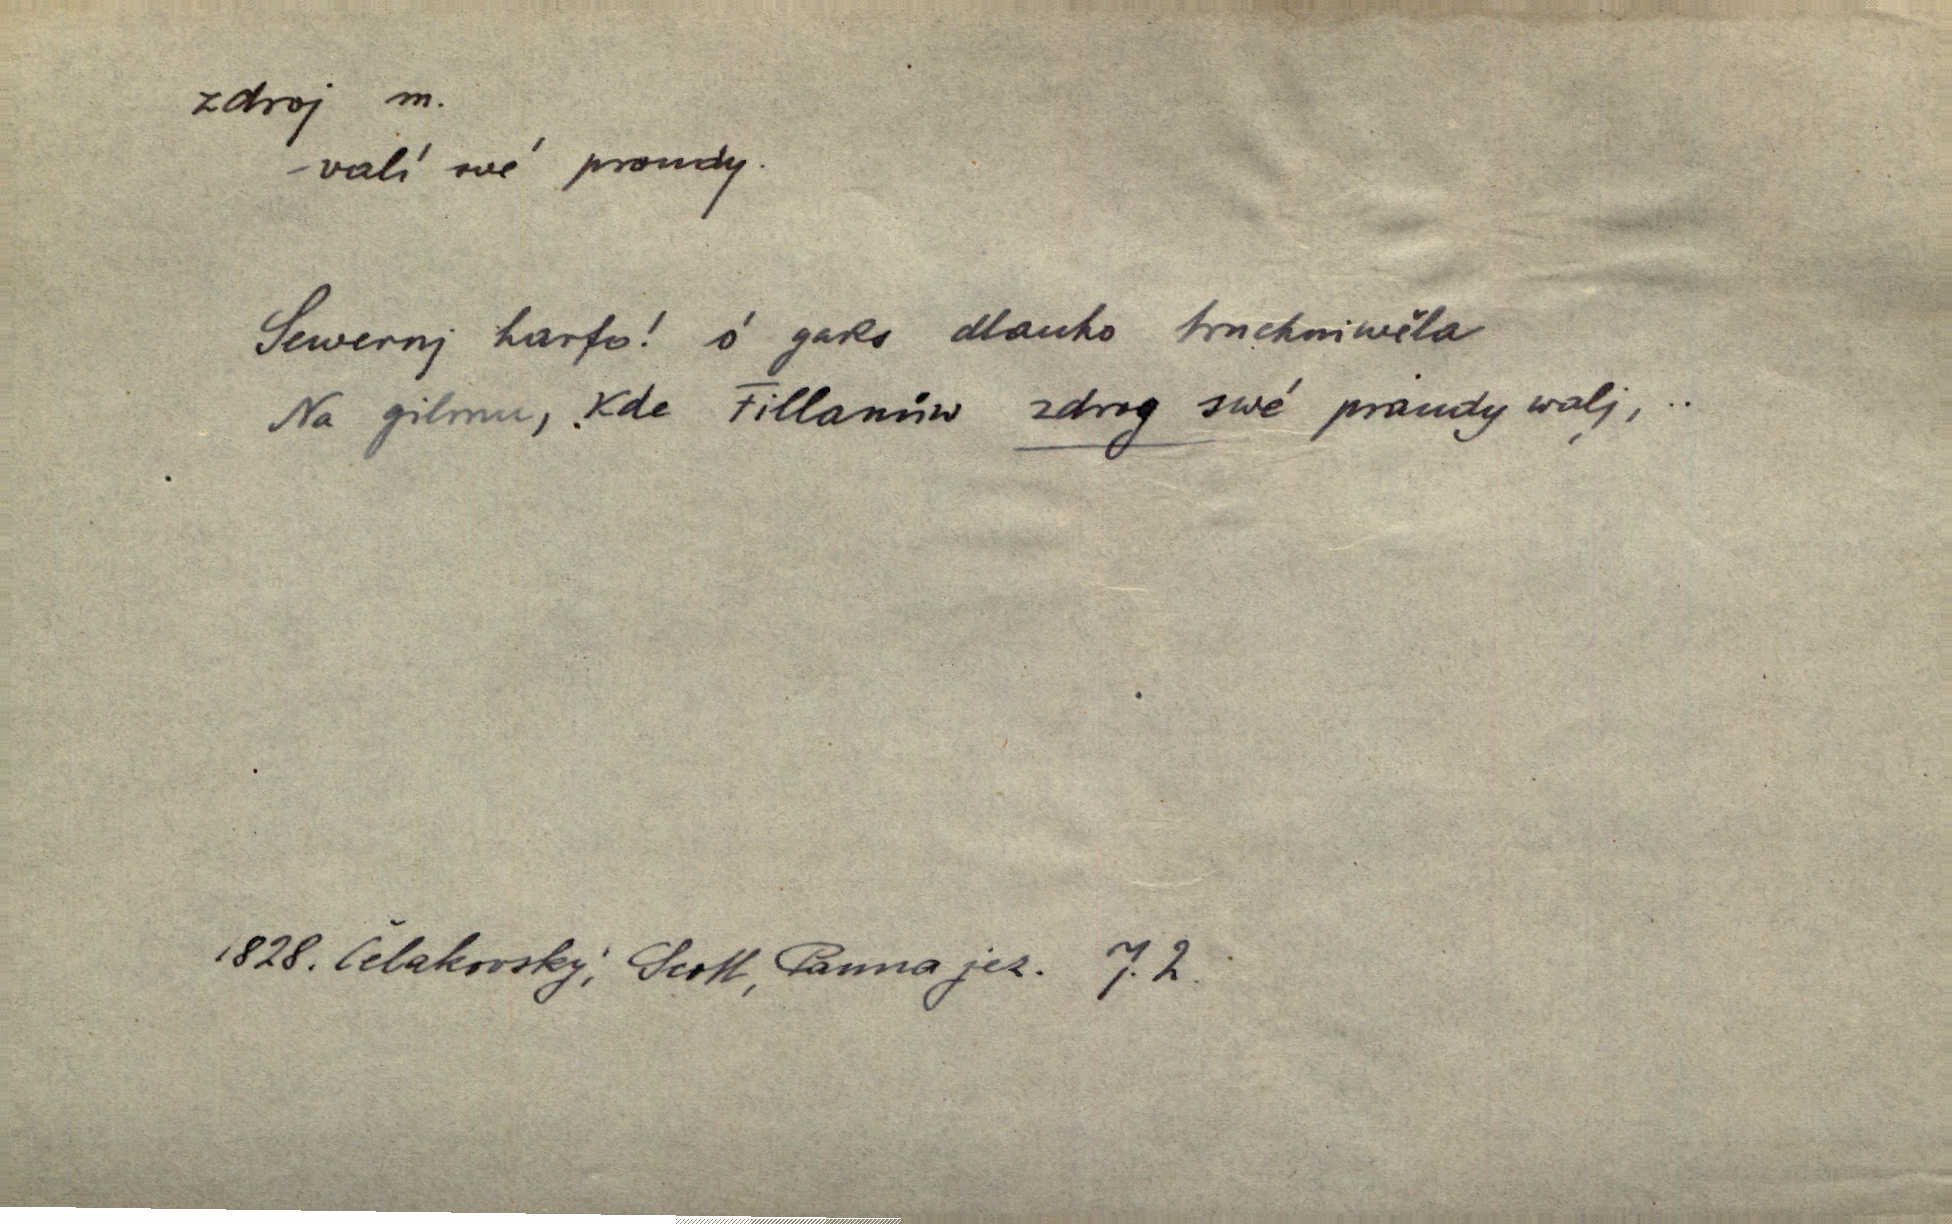 zdroj m.
- valí své proudy.
Sewernj harfo! ó gaks dlauho truchniwěla
Na gilmu, kde Fillanůw zdrog swé praudy walj, ..
1828. Čelakovský; Scott, Panna jez. 7. 2.